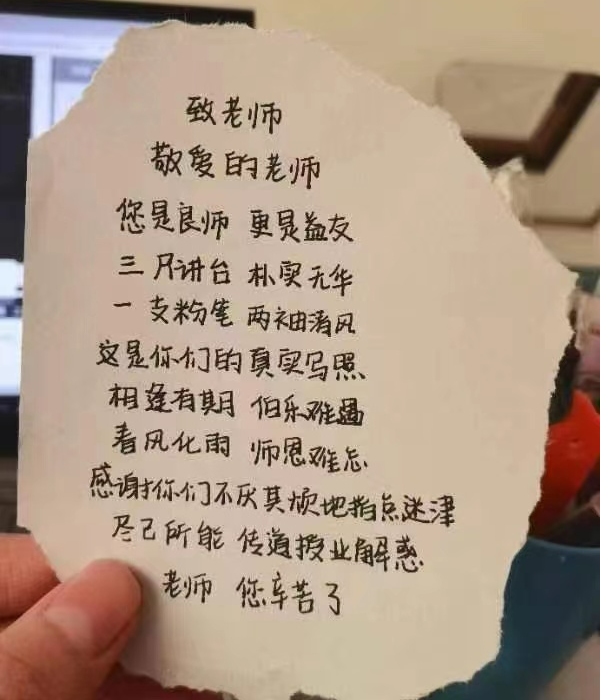 致老师
敬爱的老师
您是良师 更是益友
三尺讲台 朴实无华
一支粉笔 两袖清风
这是你们的真实写照
相逢有期 伯乐难遇
春风化雨 师恩难忘
感谢你们不厌其烦地指点迷津
尽己所能 传道授业解惑
老师 您辛苦了